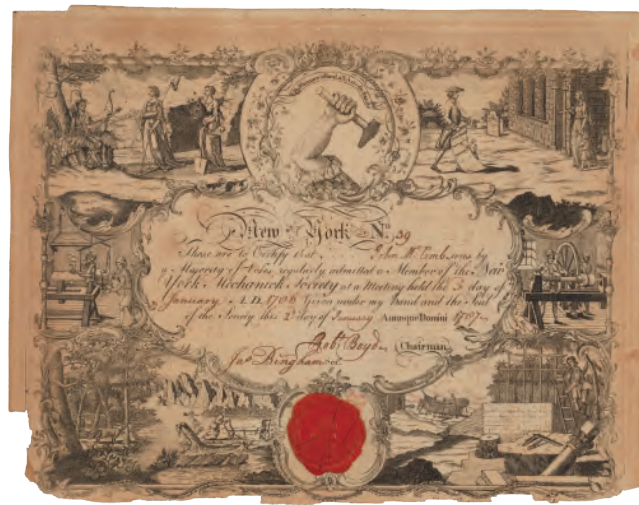 New York No. 39
These are to Certify that John McComb was by
a Majority of Votes, regularly admitted a Member of the New
York Mechanick Society at a Meeting held the 3 day of
January A.D. 1786 Given under my Hand and the Seal
of the Society this 2d day of January AnnoqueDomini 1797
Robt. Boyd Chairman
Jas. Bingham